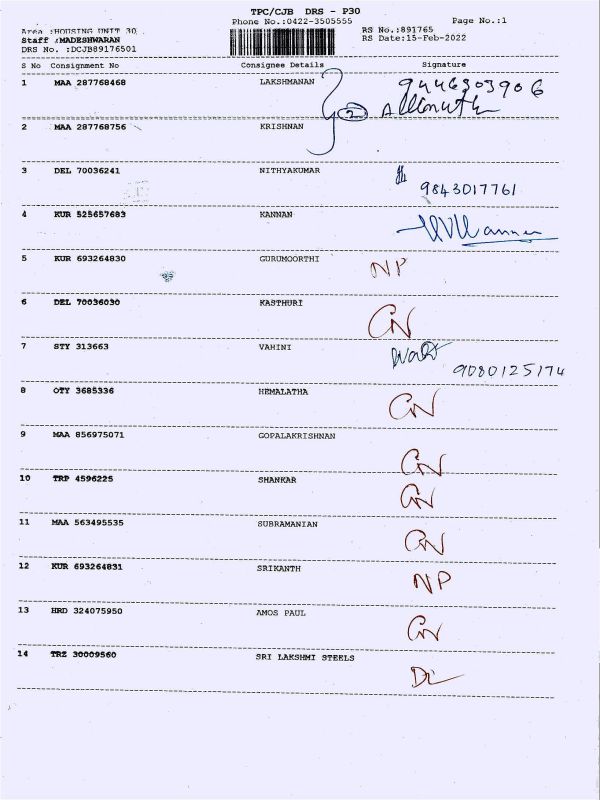 TPC/CJB DRS - P30
Phone No.:0422-3505555 Page No.:1
Area :HOUSING UNIT 30 RS No.:891765
Staff :MADESHWARAN RS Date:15-Feb-2022
DRS No. :DCJB89176501
S No Consignment No Consignee Details Signature
1 MAA 287768468 LAKSHMANAN 9446303906
2
2 MAA 287768756 KRISHNAN
3 DEL 70036241 NITHYAKUMAR
9843017761
4 KUR 525657683 KANNAN
5 KUR 693264830 GURUMOORTHI NP
6 DEL 70036030 KASTHURI CN
7 STY 313663 VAHINI
9080125174
8 OTY 3685336 HEMALATHA CN
9 MAA 856975071 GOPALAKRISHNAN CN
10 TRP 4596225 SHANKAR CN
11 MAA 563495535 SUBRAMANIAN CN
12 KUR 693264831 SRIKANTH NP
13 HRD 324075950 AMOS PAUL CN
14 TRZ 30009560 SRI LAKSHMI STEELS DL